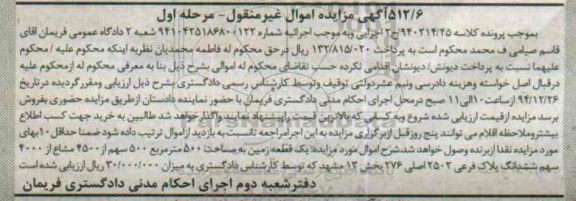 ۵۱۲/۶آگهی مزایده اموال غیرمنقول- مرحله اول
بموجب پرونده کلاسه ۹۴۰۲۱۴/۴۵ج۲ اجرایی وبه موجب اجرائیه شماره ۹۴۱۰۴۲۵۱۸۶۸۰۰۱۲۲ شعبه ۲ دادگاه عمومی فریمان اقای
قاسم صیامی ف محمد محکوم است به پرداخت ۱۳۲/۸۱۵/۰۲۰ درحق محکوم له فاطمه محمدیان نظربه اینکه محکوم علیه /محکوم
علیهما نسبت به پرداخت دیونش/دیونشان اقدامی نکرده حسب تقاضای محکوم له اموالی بشرح ذیل بنا به معرفی محکوم له ازمحکوم علیه
درقبال اصل خواسته وهزینه دادرسی ونیم عشردولتی توقیف وتوسط کارشناس رسمی دادگستری بشرح ذیل ارزیابی ومقررگردیده درتاریخ
۹۴/۱۲/۲۶ ازساعت ۱۰الی۱۱ صبح درمحل اجرای احکام مدنی دادگستری فریمان با حضور نماینده دادستان ازطریق مزایده حضوری بفروش
برسد مزایده ازقیمت ارزیابی شده شروع وبه کسانی که بالاترین قیمت راپیشنهاد نمایند واگذارخواهد شد طالبین به خرید جهت کسب اطلاع
بیشتروملاحظه اقلام می توانند پنج روزقبل ازبرگزاری مزایده به این اجرامراجعه تانسبت به بازدید ازاموال ترتیب داده شود ضمنا حداقل ۱۰بهای
مورد مزایده نقدا ازبرنده وصول خواهد شد.شرح اموال مورد مزایده: یک قطعه زمین به مساحت ۵۰۰ مترمربع ۵۰۰ سهم از۴۵۰۰ مشاع از ۴۰۰۰
سهم ششدانگ پلاک فرعی ۲۵۰۲ اصلی ۲۷۶ بخش ۱۳ مشهد که توسط کارشناس دادگستری به میزان ۳۰/۰۰۰/۰۰۰ ریال ارزیابی شده است
دفترشعبه دوم اجرای احکام مدنی دادگستری فریمان